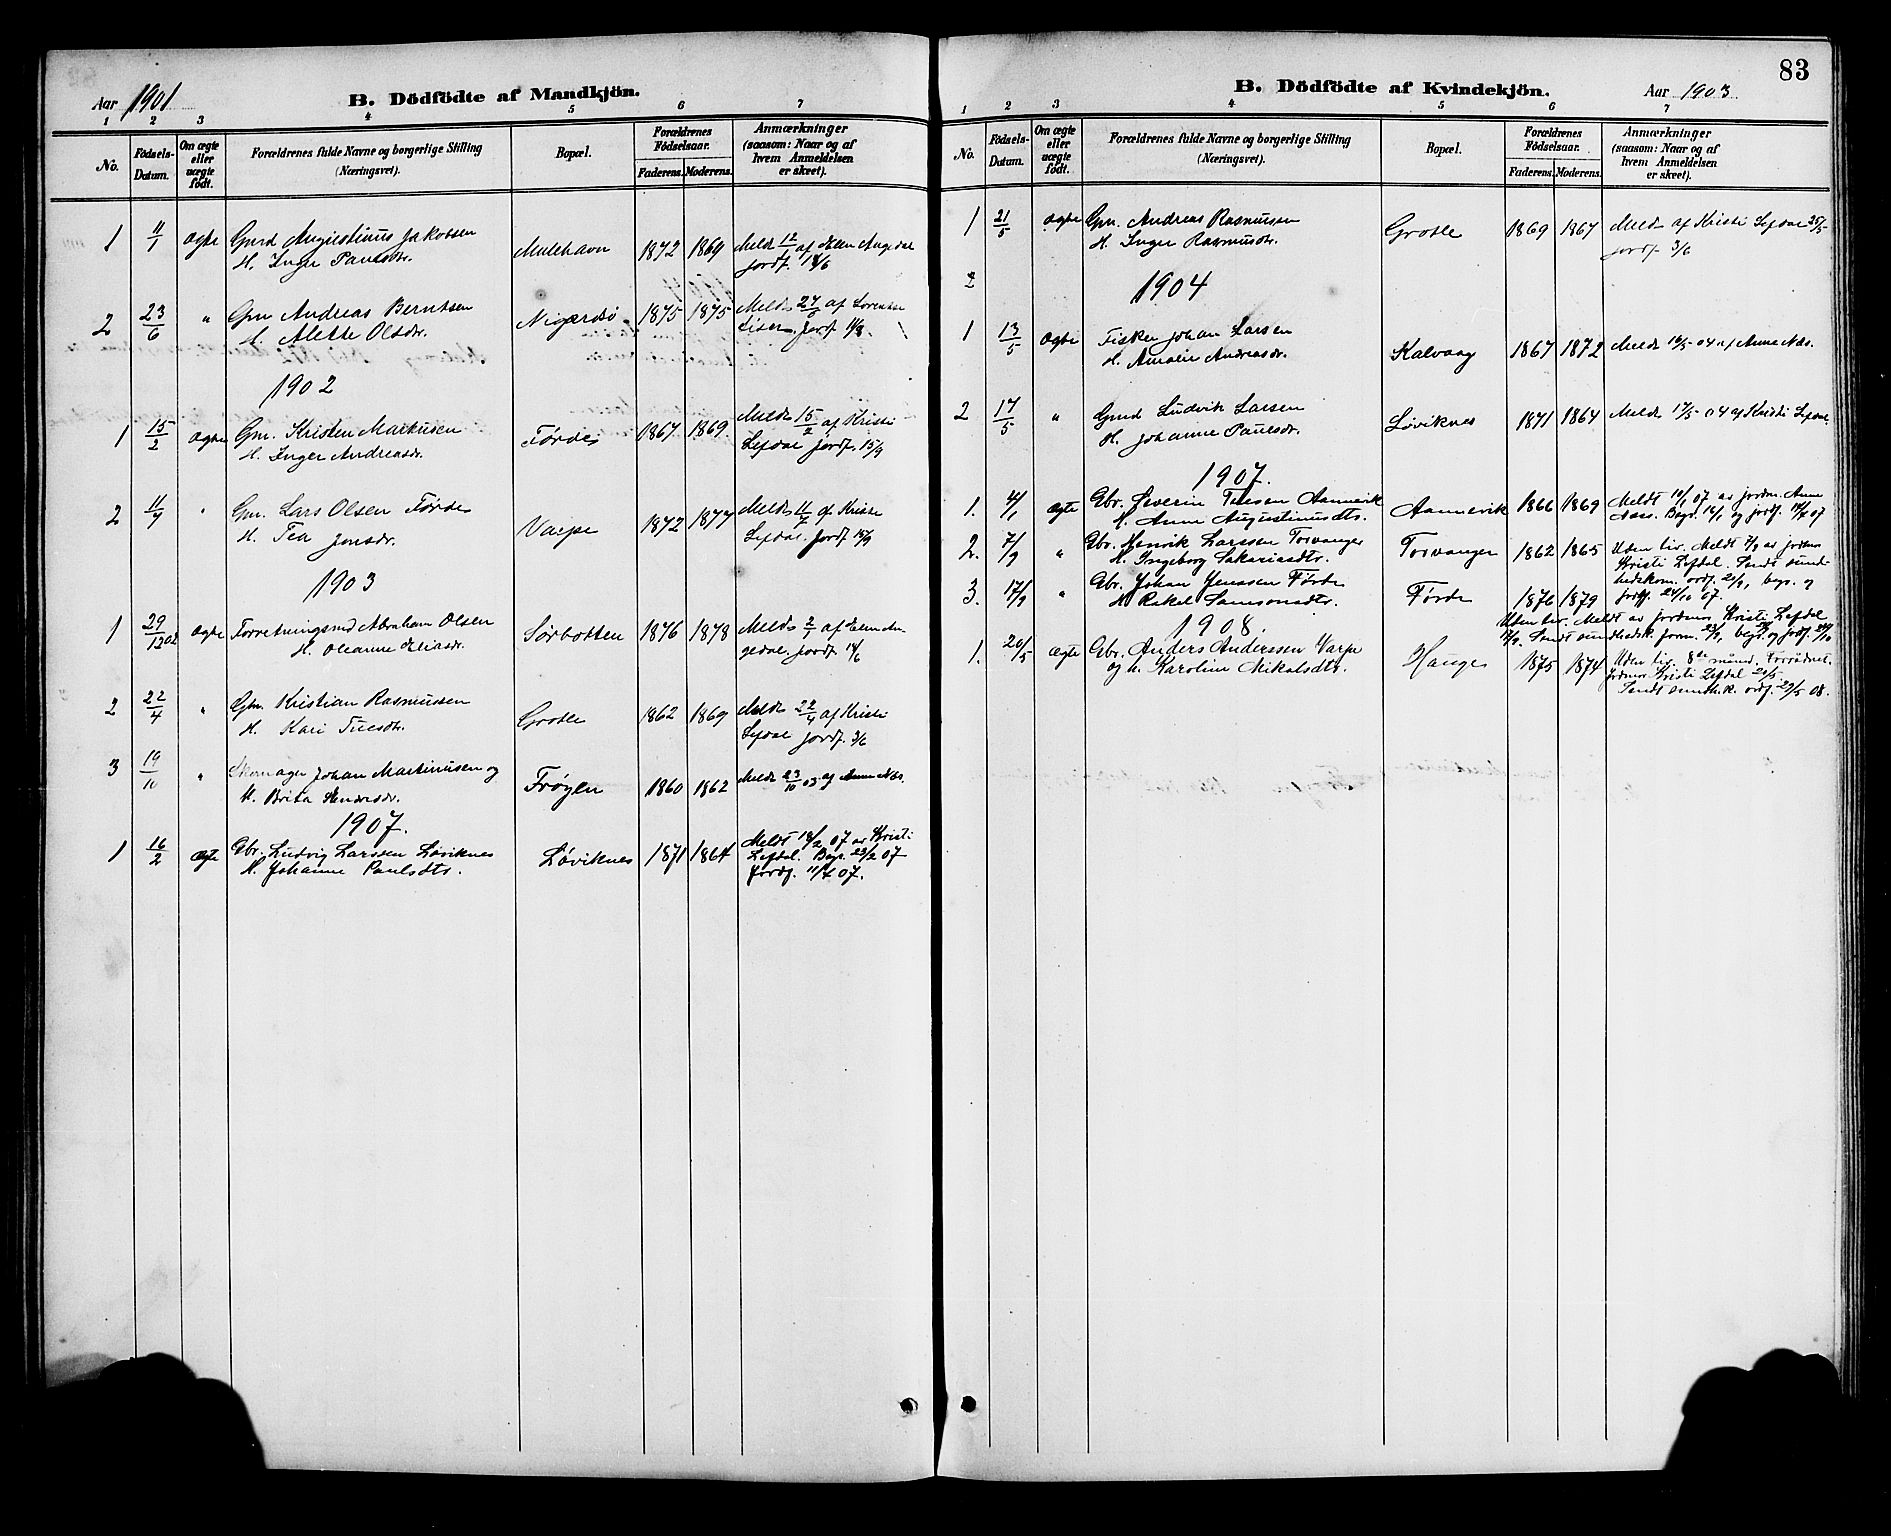 Aar 1901
B. Dödfödte af Mandkjön.
1 2 3 4 5 6 7
No.
Födsels-Datum.
Om ægte eller uægte født.
Forældrenes fulde Navne og borgerlige Stilling (Næringsvei).
Bopæl.
Forældrenes Födselsaar.
Faderens. Moderens.
Anmærkninger (saasom: Naar og af hvem Anmeldelsen er skeet).
1 11/1 ægte Gmd Augustinus Jakobsen Mulehavn 1872 1869 Meldt 12/1 af Ellen Angedal
H. Inger Paulsdr. jordf.
2 23/6 " Gm Andreas Berntsen 1875 1875 Meldt
H. Alette Olsdr. jordf.
1902
1 15/2 ægte Gm. Kristen Markusen Førde 1867 1869 Meldt 15/2 af Kristi
H. Inger Andreasdr. Lefdal jordf. 15/9
2 11/7 " Gm. Lars Olsen Førde Varpe 1872 1877 Meldt 11/7 af Kristi
H. Tea Jonsdr. Lefdal. jordf 15/9
1903
1 29/12 02 ægte Forretningsmd Abraham Olsen Sørbotten 1876 1878 Meldt 2/1 af Ellen An-
H. Oleanne Eliasdr. gedal. jordf.
2 22/4 " Gm. Kristian Rasmussen Grotle 1862 1869 Meldt 22/4 af Kristi
H. Kari Tuesdtr. Lefdal jordf 3/6
3 19/10 " Skomager Johan Martinusen og Frøyen 1860 1862 Meldt 23/10 03 af Anne Næs.
H. Brita
1907.
1 16/2 ægte Gbr. Ludvig Larssen Løviknes Løviknes 1871 1864 Meldt 18/2 07 av Kristi
H. Johanne Paulsdtr. Lefdal. Begr. 23/2 07
Jordf. 11/4 07.
83
B. Dödfödte af Kvindekjön.
Aar 1903
1 2 3 4 5 6 7
No.
Födsels-Datum.
Om ægte eller uægte födt.
Forældrenes fulde Navne og borgerlige Stilling (Næringsvei).
Bopæl.
Forældrenes Födselsaar.
Faderens. Moderens.
Anmærkninger (saasom: Naar og af hvem Anmeldelsen er skeet).
1 21/5 ægte Gm. Andreas Rasmussen Grotle 1869 1867 Meldt af Kristi Lefdal 25/5
H. Inger Rasmusdr. jordf 3/6
2
1904
1 13/5 ægte Fisker Johan Larsen Kalvaag 1867 1872 Meldt 16/5 04 af Anne Næs.
H. Amalie Andreasdr.
2 17/5 " Gmd Ludvik Larsen Løviknes 1871 1864 Meldt 17/5 04 af Kristi Lefdal.
H. Johanne Paulsdr.
1907.
1. 4/1 ægte Gbr. Severin Tuesen Aannevik Aannevik 1866 1869 Meldt 10/1 07 av jordm. Anne
H. Anne Augustinusdtr. Næss. Begr. 16/1 og jordf. 07
2. 7/9 " Gbr. Henrik Larssen Torvanger Torvanger 1862 1865 Uden liv. Meldt 7/9 av jordm
H. Ingeborg Sakariasdtr. Kristi Lefdal. Sendt sund-
hedskom. ordf. 21/9, begr. og
3. 17/9 " Gbr. Johan Jenssen Førde Førde 1876 1879 jordf. 24/10 07.
H. Rakel Samsonsdtr. Uden liv. Meldt av jordmor Kristi Lefdal
17/9. Sendt sundhedsk. form. 23/9, begr. og jordf.
1908.
1. 20/5 ægte Gbr. Anders Anderssen Varpe Hauge 1875 1874 Uden liv. 8de måned. Forrådnet.
og h. Karoline Mikalsdtr. Jordmor Kristi Lefdal 21/5.
Sendt sundh.k. ordf. 29/5 08.